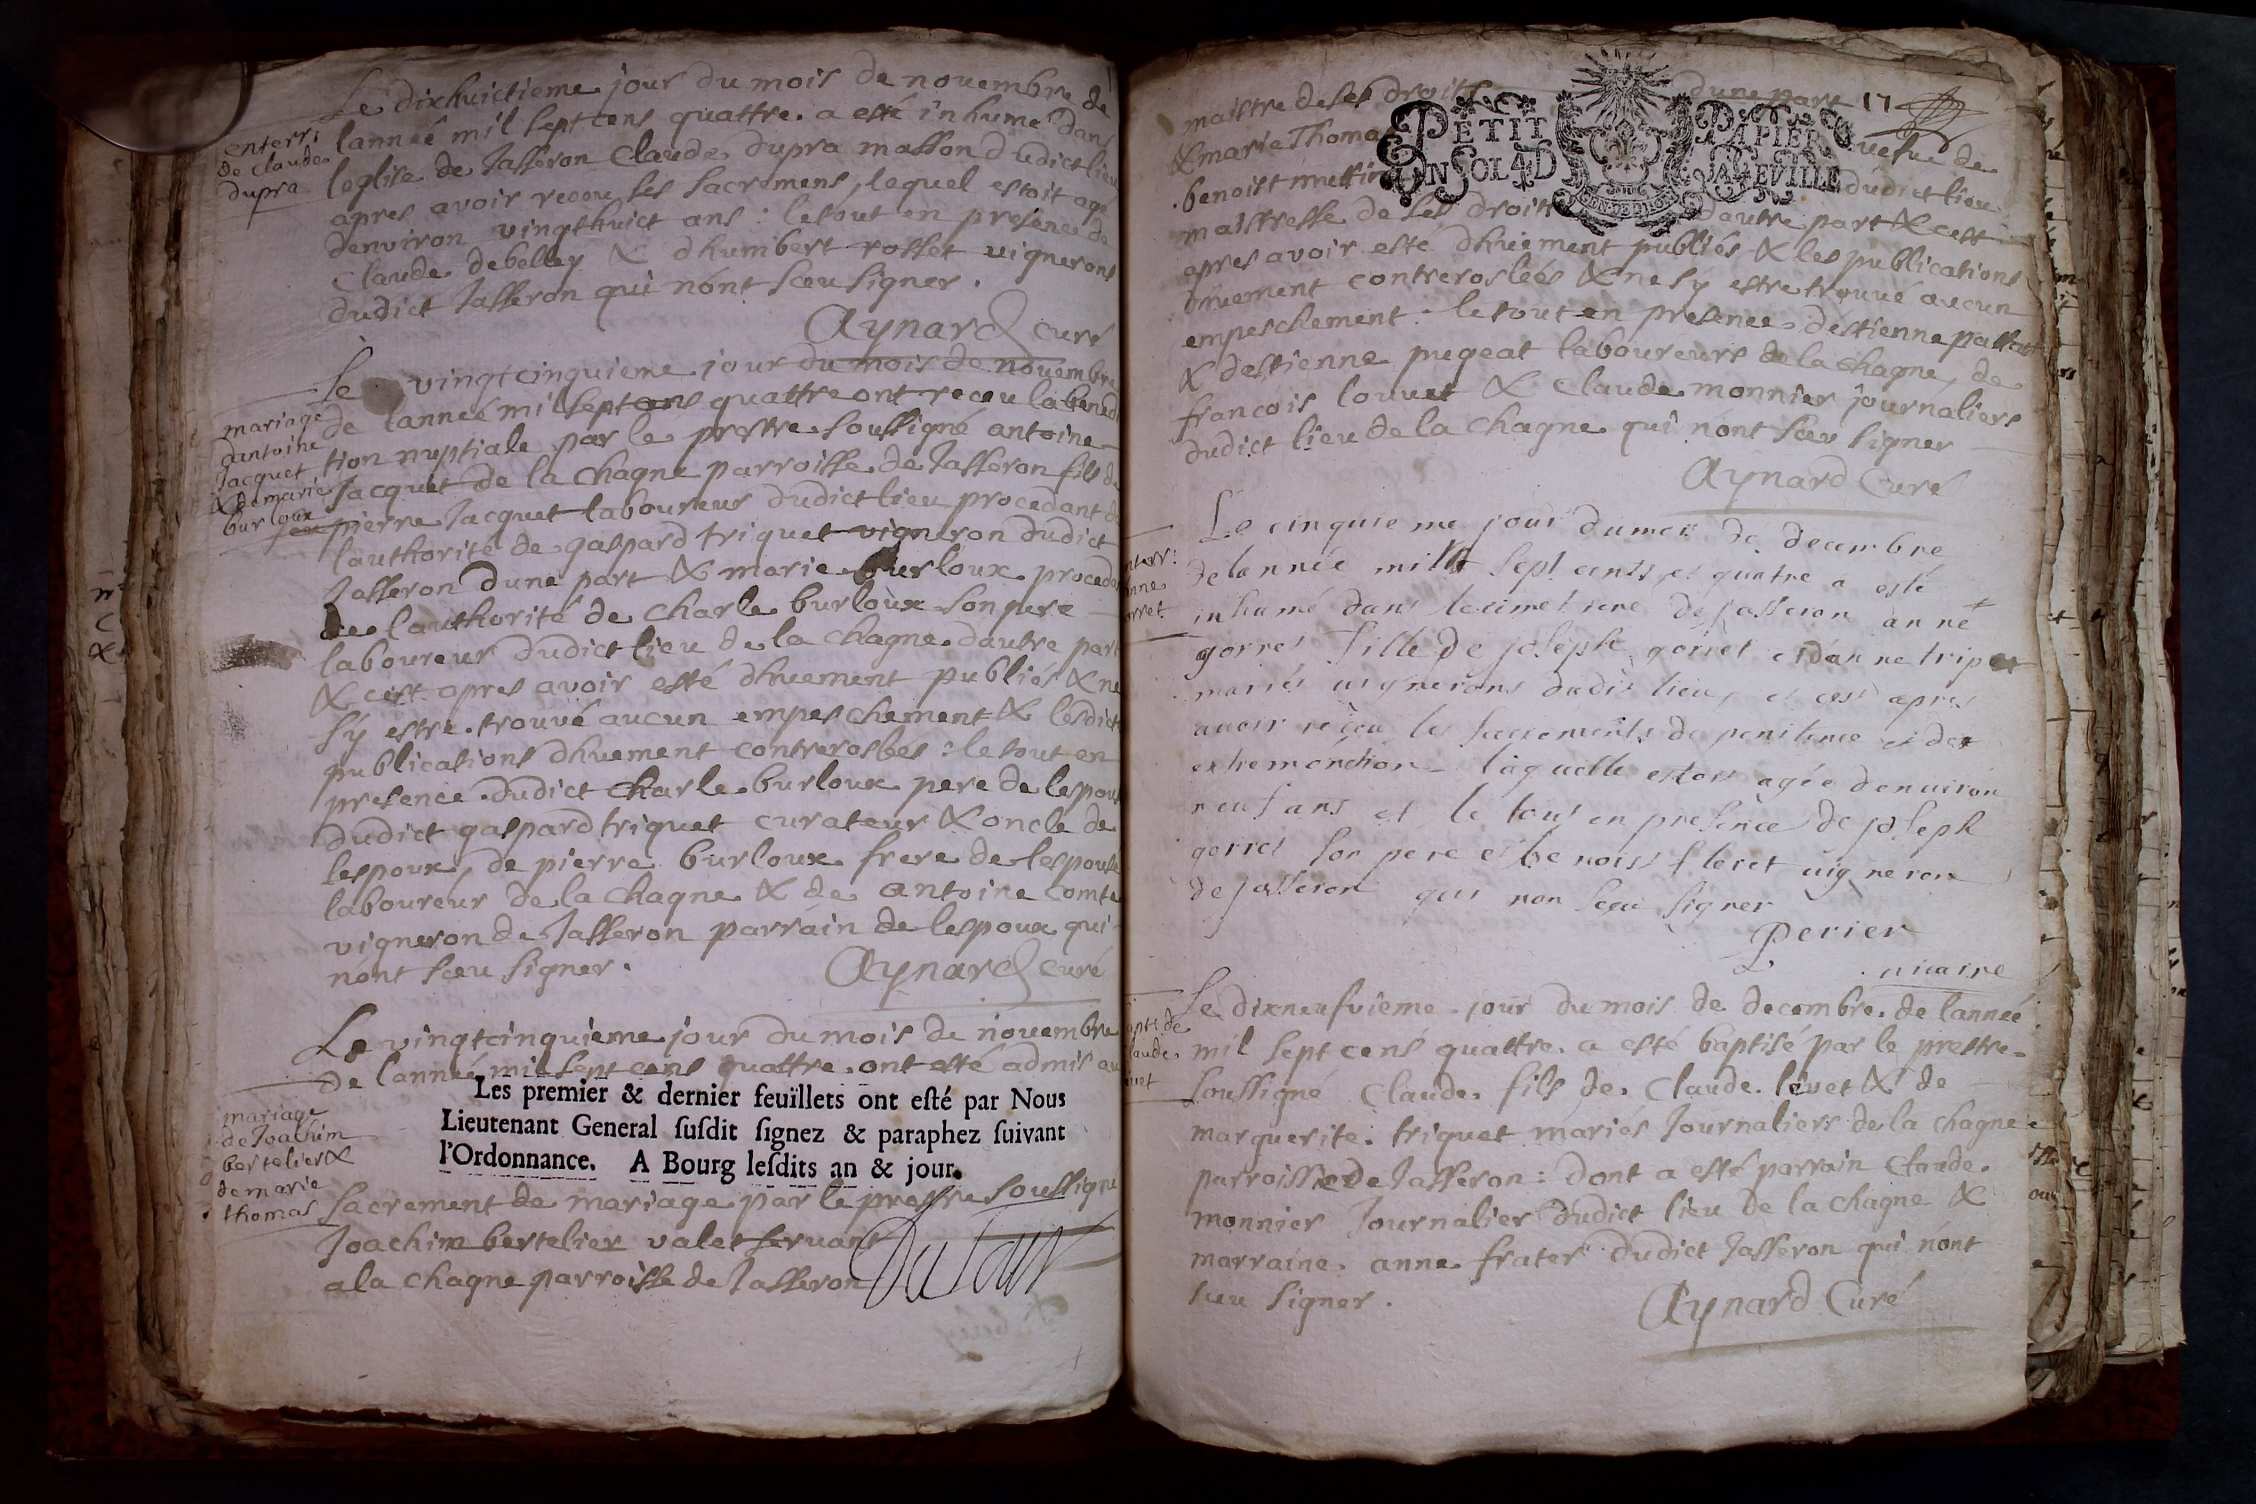 Le dixhuictieme jour du mois de nouembre de
lanneé mil sept cens quattre a esté inhume dans
leglise de Jasseron Claude dupra masson dudict lieu
apres avoir receu ses sacremens, lequel estoit agé
denviron vingthuict ans : le tout en presence de
Claude debelley & dhumbert rosset vignerons
dudict Jasseron qui nónt sceu signer.
Aynard curé
enterr:
de claude
dupra
Le vingtcinquieme jour du mois de nouembre
de lanneé mil sept cens quattre ont receu la benedi
tion nuptiale par le prestre soussigné antoine
Jacquet de la Chagne parroisse de Jasseron fils de
feu pierre Jacquet laboureur dudict lieu procedant de
lauthorité de gaspard triquet vigneron dudict
Jasseron dune part & marie burloux procedant
de lauthorité de Charle burloux son pere
laboureur dudict lieu de la Chagne dautre part
& cest apres avoir esté dhuement publiés & ne
sy estre trouvé aucun empeschement & lesdict
publications dhuement controrosleés : le tout en
presence dudict Charle burloux pere de lespouse
dudict gaspard triquet curateur & oncle de
lespoux, de pierre burloux frere de lespouse
laboureur de la Chagne & de antoine Comte
vigneron de Jasseron parrain de lespoux qui
nónt sceu signer.
Aynard curé
mariage
dantoine
Jacquet
& de marie
burloux
Le vingtcinquieme jour du mois de nouembre
de lanneé mil sept cens quattre ont esté admis au
Les premier & dernier feüillets ont esté par Nous
Lieutenant General susdit signez & paraphez suivant
l'Ordonnance. A Bourg lesdits an & jour.
sacrement de mariage par le prestre soussigné
Joachim bertelier valet servant
a la Chagne parroisse de Jasseron
mariage
de Joachim
bertelier &
de marie
thomas
maistre de ses droits dune part
17
PETIT PAPIER
UN SOL 4 D LA FEVILLE
& marie Thomas vefue de
benoist dudict lieu
maistresse de ses droits dautre part & cest
apres avoir esté dhuement publiés & les publications
dhuement controrosleés & ne sy estre trouvé aucun
empeschement : le tout en presence destienne
& destienne pugeat laboureurs de la Chagne, de
francois louuet & Claude monnier journaliers
dudict lieu de la Chagne qui nónt sceu signer
Aynard Curé
Le cinquieme jour du mois de decembre
de lannée mille sept cents et quatre a esté
inhumé dans le cimetiere de Jasseron anne
gorret fille de joseph gorret et danne tripet
mariés vignerons dudit lieu, et ces apres
auoir reçeu les sacrements de penitence et de
extremonction laquelle estoit agée denuiron
neuf ans et le tout en presence de joseph
gorret son pere et benoist floret vigneron
de Jasseron qui non sceu signer
Perier
vicaire
enterr:
anne
gorret
Le dixneufvieme jour du mois de decembre de lanneé
mil sept cens quattre a esté baptisé par le prestre
soussigné Claude fils de Claude levet & de
marguerite triquet mariés Journaliers de la chagne
parroisse de Jasseron : dont a esté parrain Claude
monnier Journalier dudict lieu de la chagne &
marraine anne frater dudict Jasseron qui nónt
sceu signer.
Aynard Curé